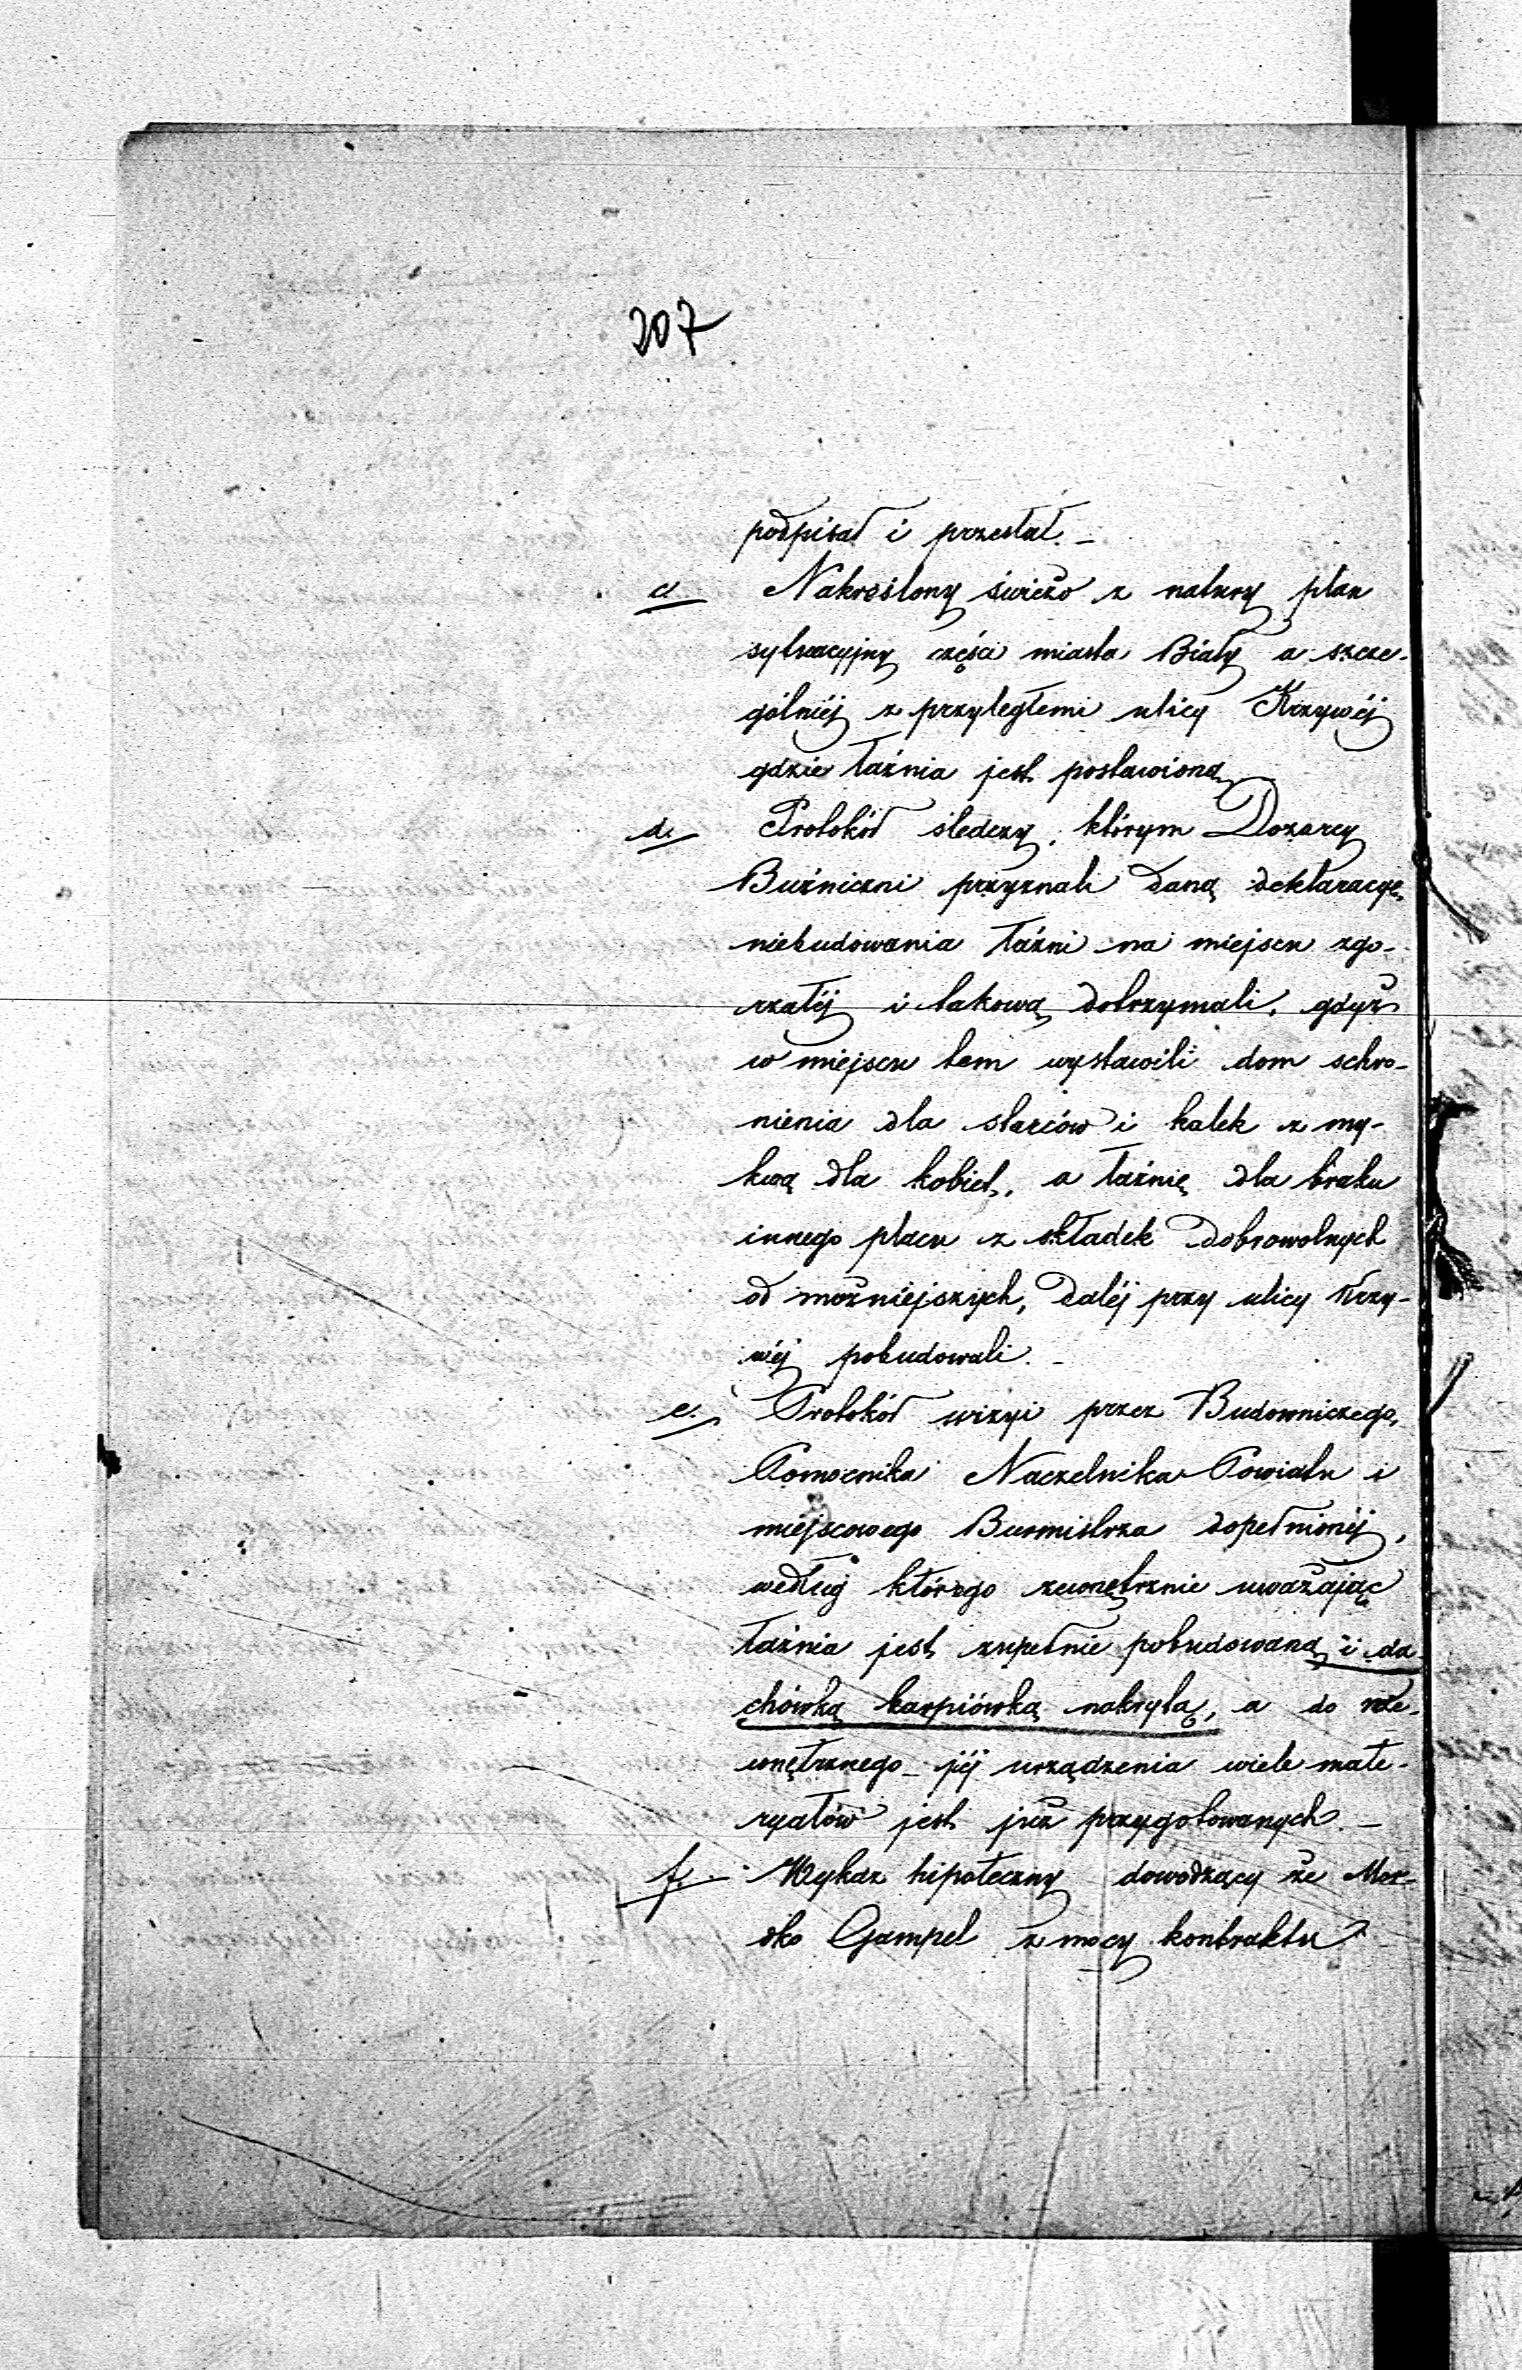 207
podpisał i przesłał. –
c Nakreślony świeżo z natury plan
sytuacyjny części miasta Biały a szcze-
gólniéj z przyległemi ulicy Krzywéj
gdzie łaźnia jest postawioną
d. Protokół śledczy, którym Dozorcy
Buźniczni przyznali daną deklaracyę
niebudowania łaźni na miejscu zgo-
rzałéj i takową dotrzymali, gdyż
w miejscu tem wystawili dom schro-
nienia dla starców i kalek z my-
kwą dla kobiet, a łaźnię dla braku
innego placu z składek dobrowolnych
od możniejszych, daléj przy ulicy Krzy-
wéj pobudowali. –
e. Protokół wizyi przez Budowniczego,
Pomocnika Naczelnika Powiatu i
miejscowego Burmistrza dopełnionéj,
według którego zewnętrznie uważając
łaźnia jest zupełnie pobudowaną i da-
chówką karpiówką nakrytą, a do we-
wnętrznego jéj urządzenia wiele mate-
ryałów jest już przygotowanych. –
f. Wykaz hipoteczny dowodzący że Mor-
dko Gampel z mocy kontraktu